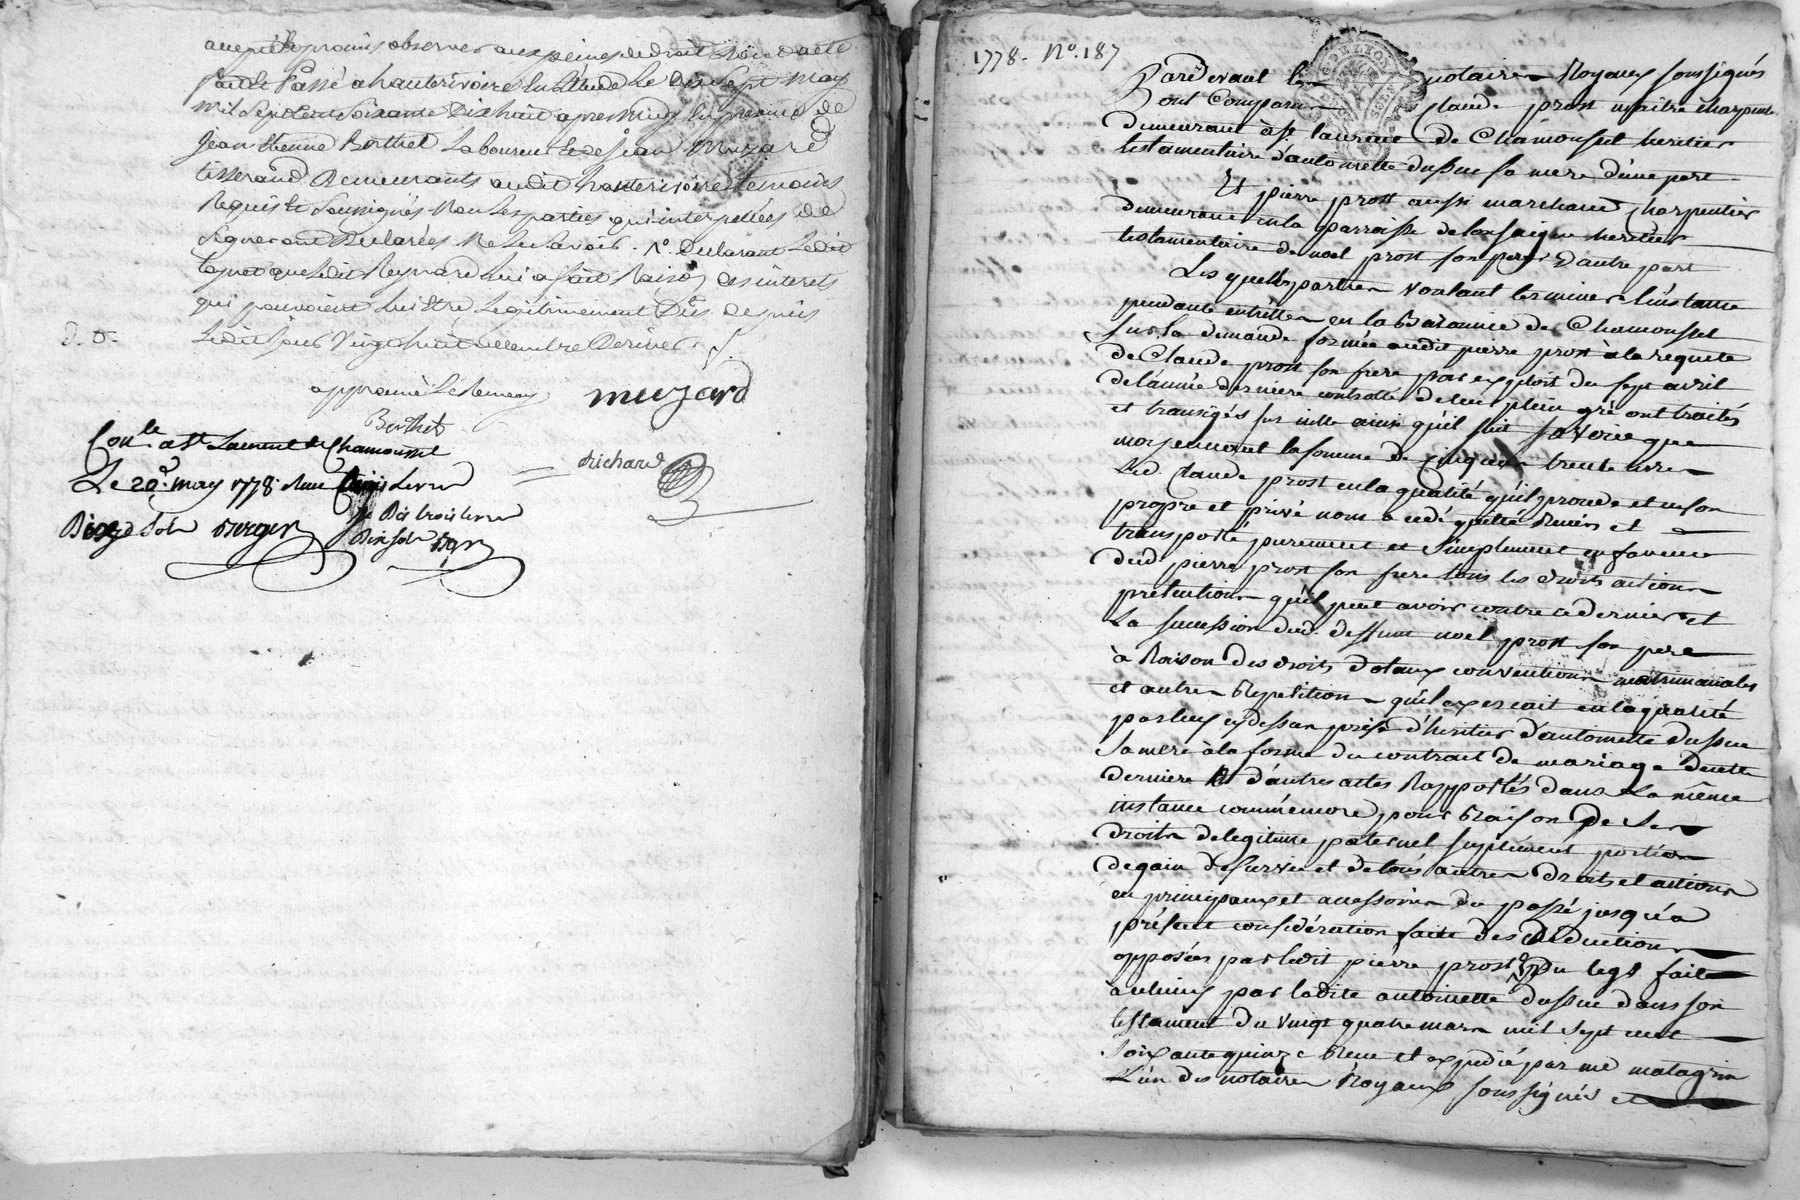 accepté promis observer aux peines de droit Dont acte
fait & Passé a hauterivoire En l'étude Le dix Sept May
mil Sept cent Soixante Dix huit apres Midy En presence de
Jean Etienne Berthet Laboureur & de Jean Muzard
tisserand Demeurants audit hauterivoire temoins
Requis & Soussignés Non Les parties qui interpellées de
Signer ont Declarées Ne Le Savoir. Declarant Ledit
que Ledit Reynard Lui a fait Raison des interets
qui pouvoient lui Etre Legitimement Dus depuis
Ledit Jour Vingt huit decembre Dernier
approuvé Le Renvoy
muzard
Berthet
Con.lé a St Laurent de Chamousset
Richard
Le 20e. may 1778. Livres
Dix Sols Berger
Dix Sols
1778. No. 187
Pardevant les notaires Royaux soussignés
Sont Comparus Claude prost maître charpentier
demeurant à St laurent de Chamousset heritier
testamentaire d'antoinette dussuc sa mere d'une part
Et pierre prost aussi marchand charpentier
demeurant en la parroisse de lonsaigue heritier
testamentaire de noel prost son pere d'autre part
Les quelles parties voulant terminer l'instance
pendante entr'elles en la Baronnie de Chamousset
sur la demande formée audit pierre prost à la requete
de Claude prost son frere par exploit du sept avril
de l'année derniere controllé de leur plein gré ont traités
et transigés sur icelle ainsi qu'il suit savoir que
moyennant la somme de cinquante livres
led Claude prost en la qualité qu'il procede et en son
propre et privé nom a cedé quitté Remis et
transporté purement et simplement en faveur
dud pierre prost son frere tous les droits actions
pretentions qu'il peut avoir contre ce dernier et
La succession dud. deffunt noel prost son pere
à Raison des droits dotaux conventions matrimoniales
et autres Repetitions qu'il exercait en la qualité
par luy cy dessus prise d'heritier d'antoinette dussuc
sa mere à la forme du contrat de mariage de cette
derniere & d'autres actes Rapportés dans La même
instance comm'encore pour Raison De Ses
droits de legitime paternel suplément portion
de gain de survie et de tous autres Droits et actions
en principaux et accessoires du passé jusqu'a
présent considération faite des Déductions
opposées par ledit pierre prost du legs fait
à celuy par ladite antoinette dussuc dans son
testament du vingt quatre mars mil sept cent
soixante quinze Reçu et expedié par me matagrin
L'un des notaires Royaux soussignés et